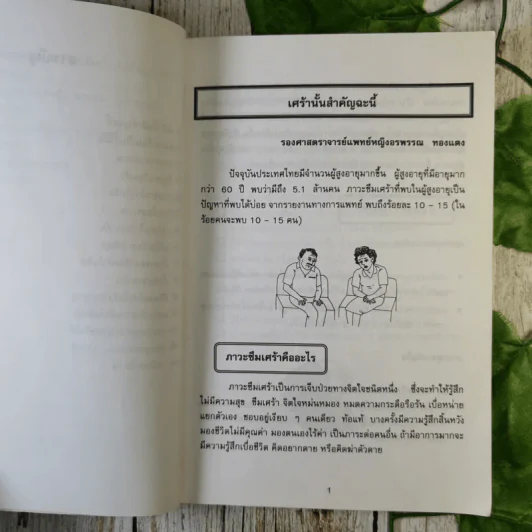 เศร้านั้นสำคัญฉะนี้
รองศาสตราจารย์แพทย์หญิงอรพรรณ ทองแตง
ปัจจุบันประเทศไทยมีจำนวนผู้สูงอายุมากขึ้น ผู้สูงอายุที่มีอายุมาก
กว่า 60 ปี พบว่ามีถึง 5.1 ล้านคน ภาวะซึมเศร้าที่พบในผู้สูงอายุเป็น
ปัญหาที่พบได้บ่อย จากรายงานทางการแพทย์ พบถึงร้อยละ 10 - 15 (ใน
ร้อยคนจะพบ 10 - 15 คน)
ภาวะซึมเศร้าคืออะไร
ภาวะซึมเศร้าเป็นการเจ็บป่วยทางจิตใจชนิดหนึ่ง ซึ่งจะทำให้รู้สึก
ไม่มีความสุข ซึมเศร้า จิตใจหม่นหมอง หมดความกระตือรือร้น เบื่อหน่าย
แยกตัวเอง ชอบอยู่เงียบ ๆ คนเดียว ท้อแท้ บางครั้งมีความรู้สึกสิ้นหวัง
มองชีวิตไม่มีคุณค่า มองตนเองไร้ค่า เป็นภาระต่อคนอื่น ถ้ามีอาการมากจะ
มีความรู้สึกเบื่อชีวิต คิดอยากตาย หรือคิดฆ่าตัวตาย
1